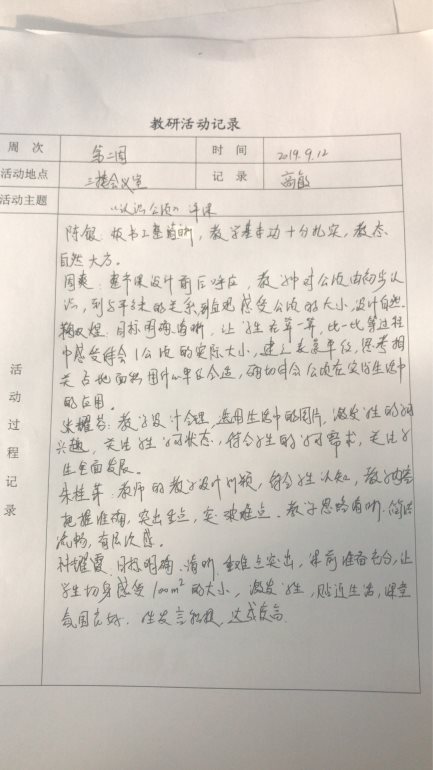 教研活动记录
周 次 第二周 时 间 2019.9.12
活动地点 三楼会议室 记 录 高敏
活动主题 《认识公顷》评课
活动过程记录
陈敏：板书工整清晰，教学基本功十分扎实，教态
自然大方。
周爽：整节课设计前后呼应，教学中对公顷由初步认
识，到与平方米的关系到直观感受公顷的大小，设计自然。
目标明确清晰，让学生在算一算，比一比等过程
中感受体会1公顷的实际大小，建立表象单位，思考相
关占地面积用什么单位合适，确切体会公顷在实际生活中
的应用。
教学设计合理，选用生活中的图片，激发学生的学习
兴趣，关注学生学习状态，符合学生的学习需求，关注学
生全面发展。
朱桂萍：教师的教学设计新颖，符合学生认知，教学内容
把握准确，突出重点，突破难点，教学思路清晰，简洁
流畅，有层次感。
目标明确、清晰，重难点突出，课前准备充分，让
学生切身感受100m²的大小，激发学生，贴近生活，课堂
氛围良好，学生发言积极，达成度高。